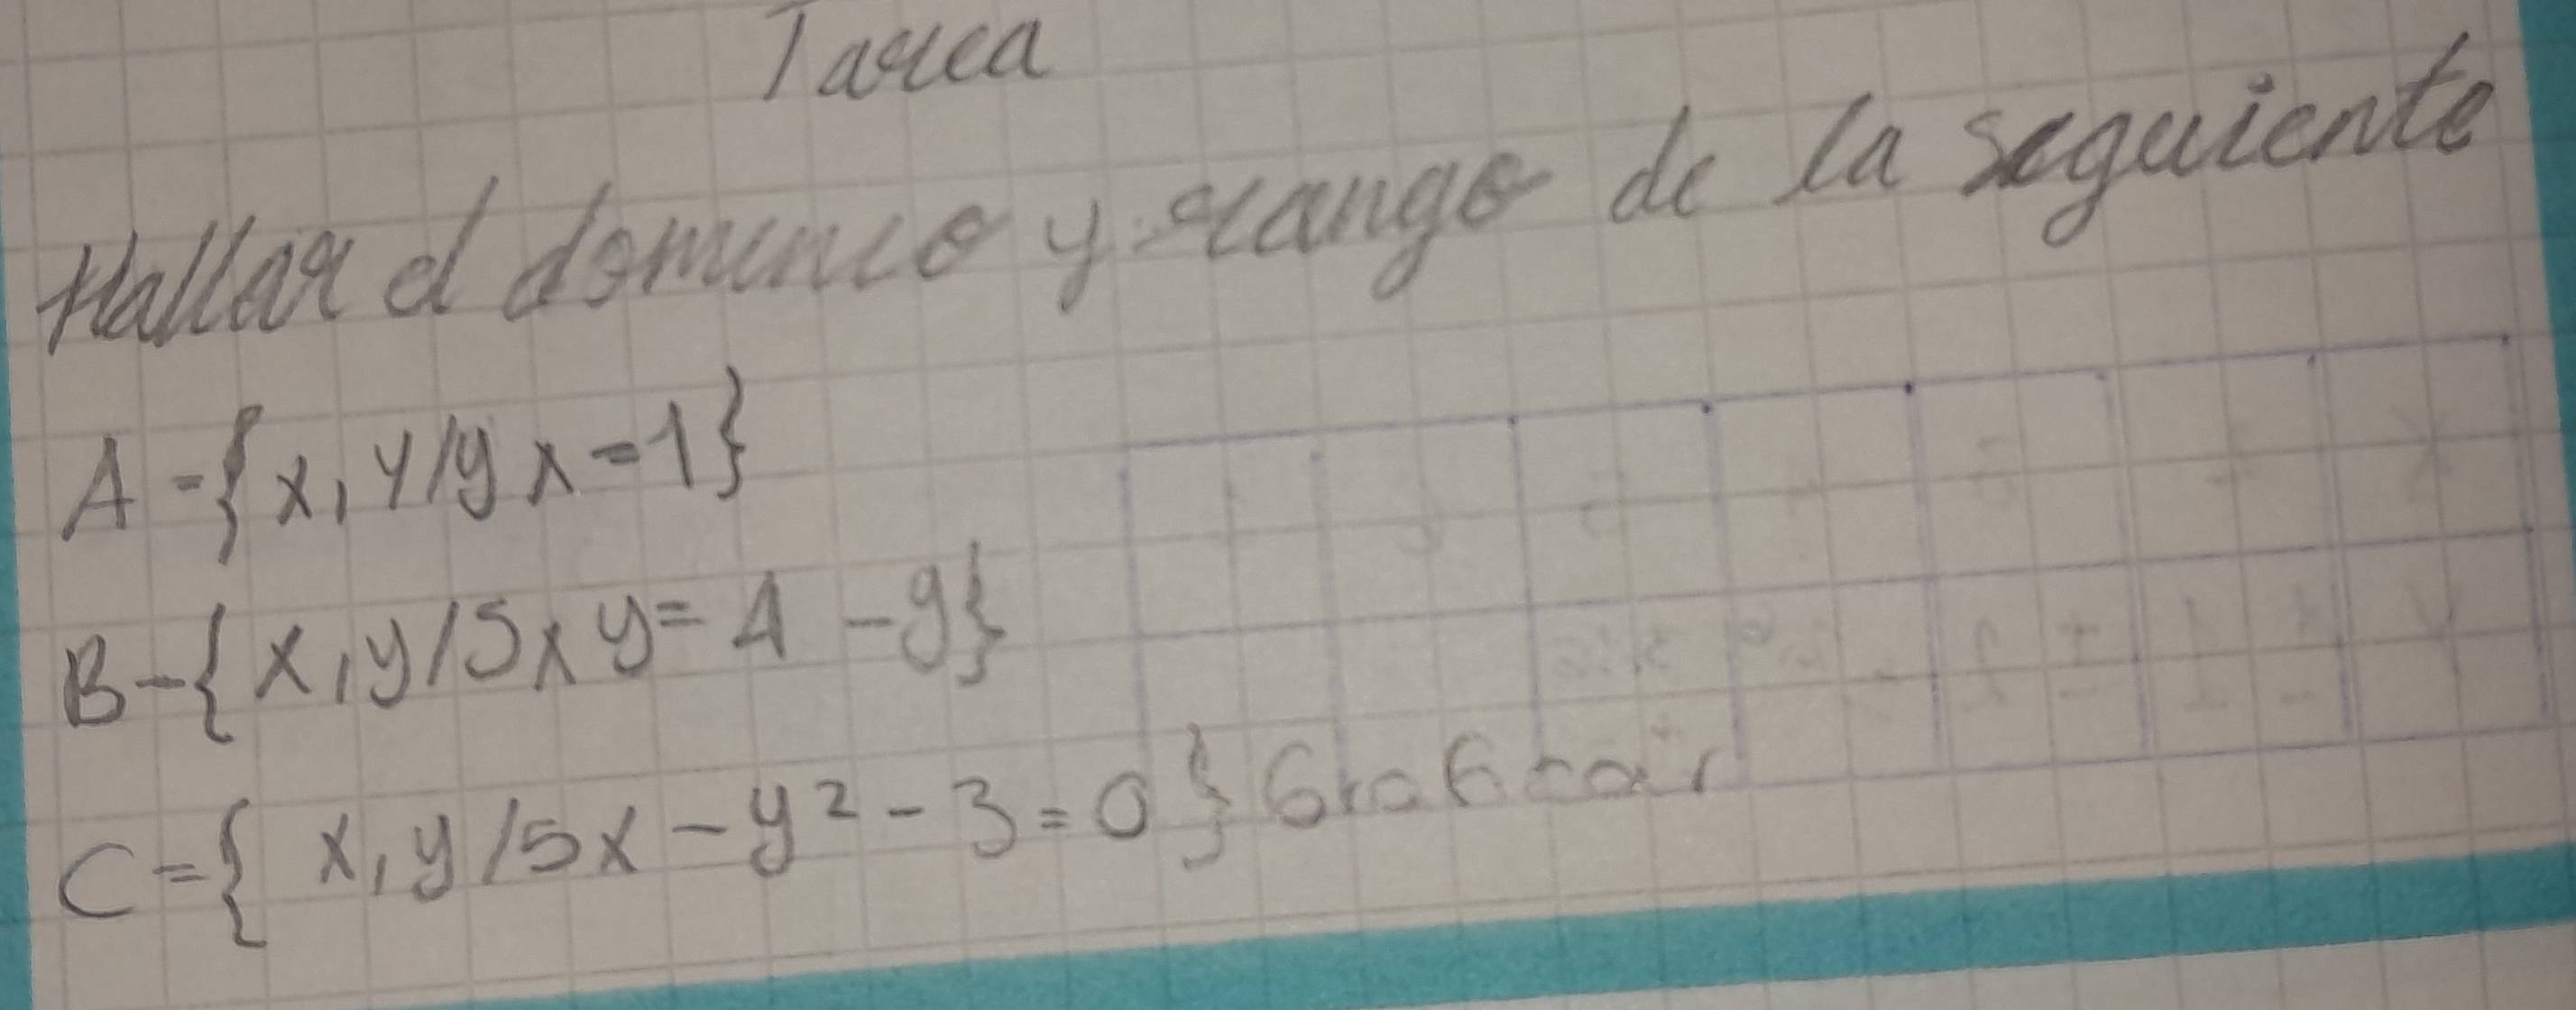 Tarea
Hallar el dominio y rango de la siguiente
A={x,y/yx=1}
B={x,y/5xy=1-y}
C={x,y/5x-y²-3=0} Graficar